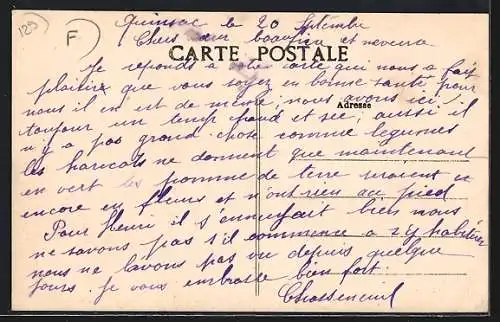 129
F
Quinsac le 20 Septembre
Chers sœur beaufrère et neveux
CARTE POSTALE
Je réponds a votre carte qui nous a fait
plaisire que vous soyez en bonne santé pour
nous il en est de meme, nous avons ici
Adresse
toujour un temp chaud et sec, aussi il
n'y a pas grand chose comme legumes
les haricots ne donnent que maintenant
en vert les pomme de terre
encore en fleurs et n'ont rien au pied
Pour Henri il s'ennuyait bien nous
ne savons pas s'il commence a s'y habituer
nous ne lavons pas vu depuis quelque
jours. Je vous embrasse bien fort.
Chasseneuil